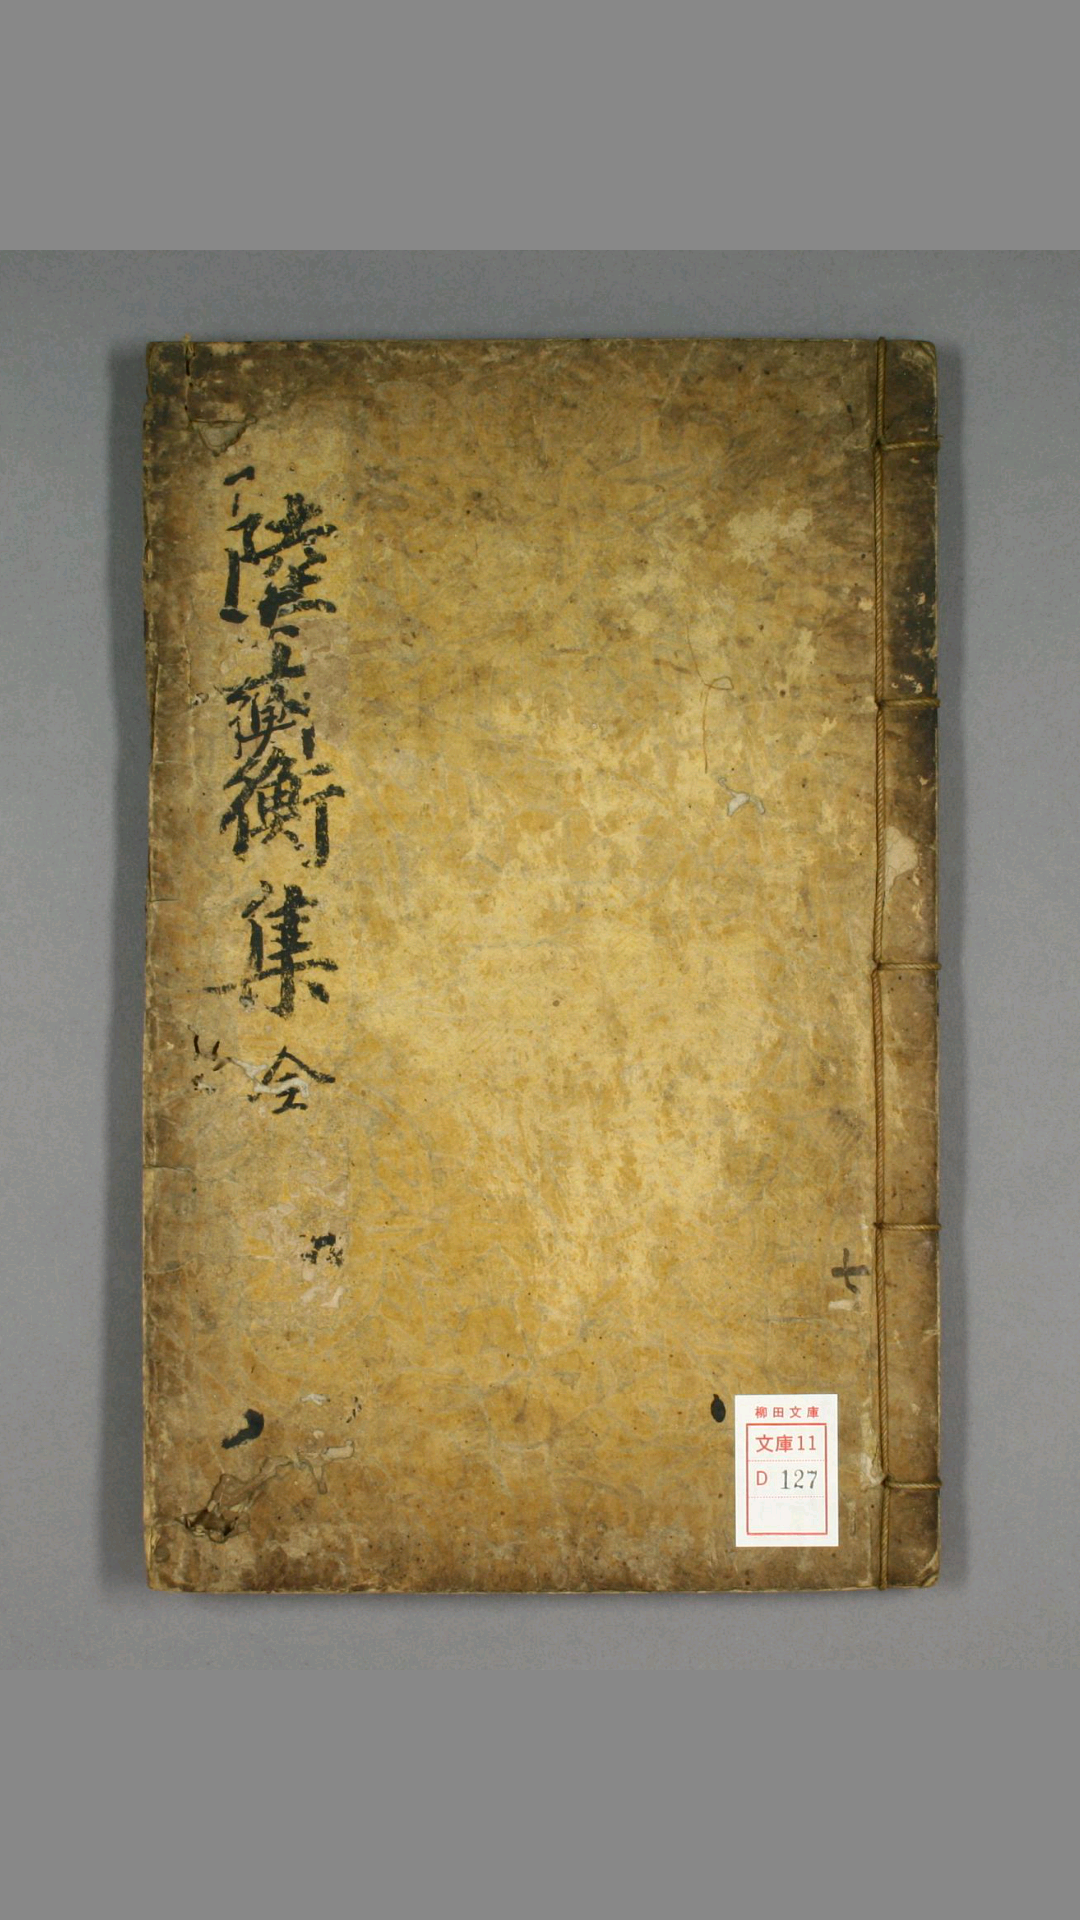 陸士衡集 全
七
柳田文庫
文庫11
D 127